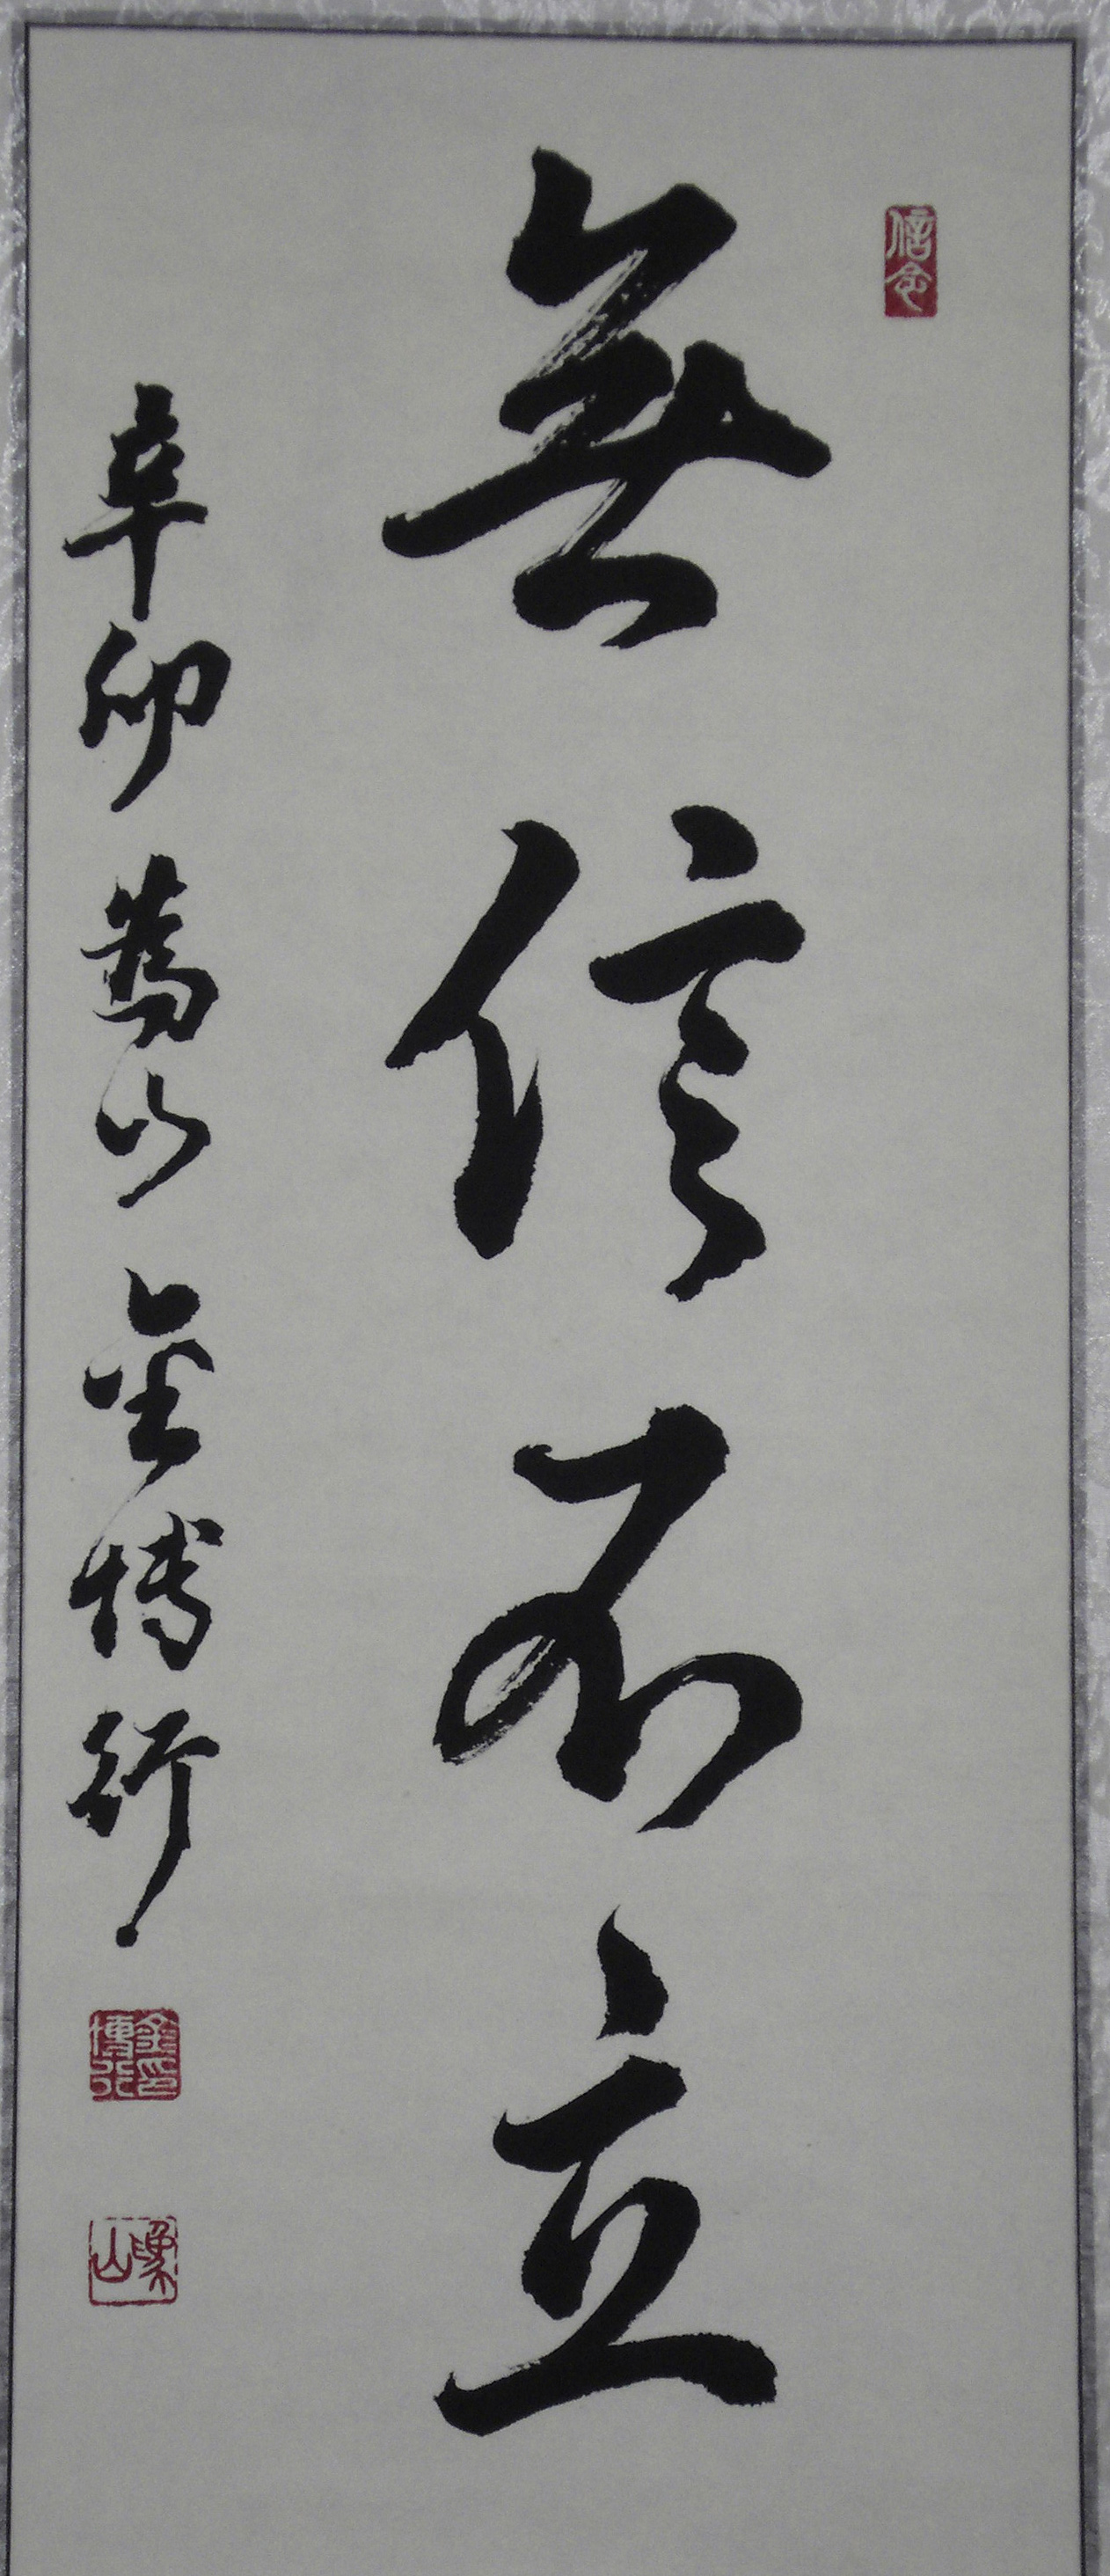 無信不立
辛卯 為山 金博行
信念
金博行印
山